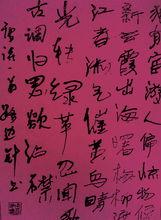 独有宦游人偏惊物候
新云霞出海曙梅柳渡
江春淑气催黄鸟晴
光转绿苹忽闻歌
古调归思欲沾襟
唐诗一首
书